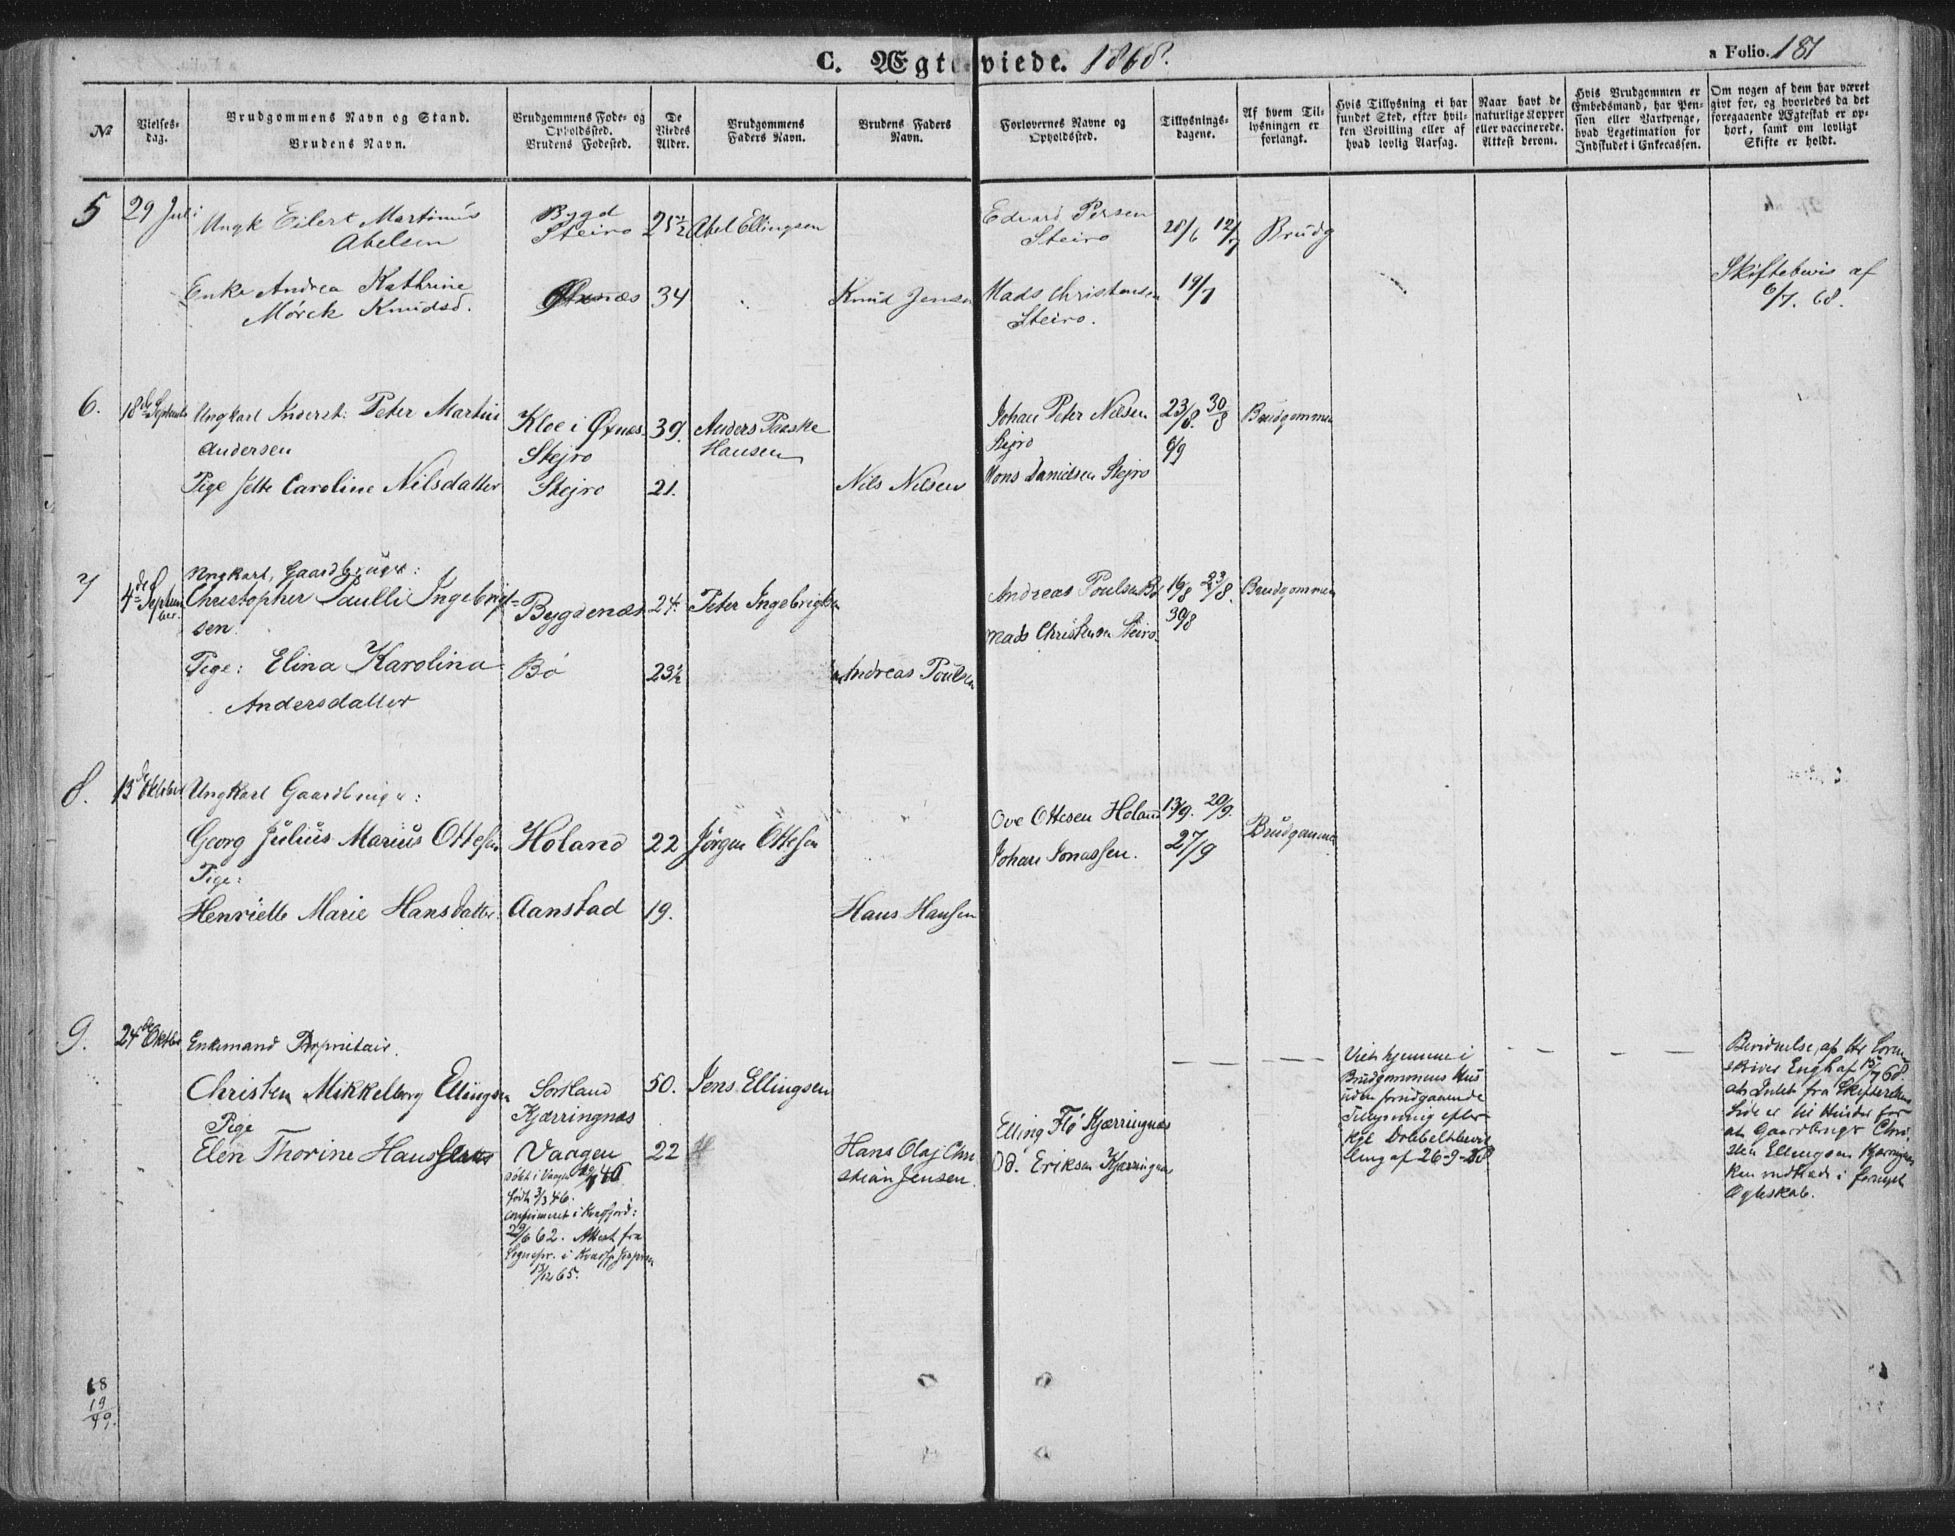 C. Ægteviede. 1868.
a Folio. 181
№
Vielses-
dag.
Brudgommens Navn og Stand.
Brudens Navn.
Brudgommens Føde- og
Opholdssted.
Brudens Fødested.
De
Viedes
Alder.
Brudgommens
Faders Navn.
Brudens Faders
Navn.
Forlovernes Navne og
Opholdssted.
Tillysnings-
dagene.
Af hvem Til-
lysningen er
forlangt.
Hvis Tillysning ei har
fundet Sted, efter hvil-
ken Bevilling eller af
hvad lovlig Aarsag.
Naar havt de
naturlige Kopper
eller vaccinerede.
Attest derom.
Hvis Brudgommen er
Embedsmand, har Pen-
sion eller Vartpenge,
hvad Legetimation for
Indskudet i Enkecassen.
Om nogen af dem har været
givt for, og hvorledes da det
foregaaende Ægteskab er op-
hørt, samt om lovligt
Skifte er holdt.
5 29 Juli Ungk Eilert Martinus
Abelsen
Bygd
Steiro
25½ Abel Ellingsen
Edvard Persen
Steiro
28/6 12/7 Brudg
Enke Andrea Kathrine
Mørck Knudsd.
Øxnæs 34 Knud Jensen
Mads Christensen
Steiro.
19/7
Skiftebevis af
6/7. 68.
6. 18de Septembr Ungkarl Inderst: Peter Martin
Andersen
Klee i Øxnæs
Stejro
39. Anders Paaske
Hansen
Johan Peter Nilsen
Stejro
23/8. 30/8
6/9
Brudgommen
Tige Jette Caroline Nilsdatter Stejro 21. Nils Nilsen
Mons Danielsen Stejro
7 4de Septem
ber.
Ungkarl, Gaardbruger:
Christopher Paulli Ingebrigt-
sen.
Bygdenæs 24. Peter Ingebrigtsen
Andreas Poulsen Bø 16/8 23/8. Brudgommen
30/8
Mads Christensen Steiro.
Tige: Elina Karolina
Andersdatter
Bø 23½ Andreas Poulsen
8. 13de Oktober Ungkarl Gaardbruger:
Georg Julius Marius Ottesen Holand 22 Jørgen Ottesen
Ove Ottesen Holand 13/9. 20/9.
Johan Jonassen. 27/9
Brudgommen
Tige:
Henriette Marie Hansdatter. Aanstad 19. Hans Hansen
9. 24de Oktbr Enkemand Proprietair.
Christen Mikkelborg Ellingsen Sortland
Kjærringnæs
50. Jens Ellingsen
Elling Flø Kjærringnæs
Od. Eriksen Kjærringnæs
Pige
Elen Thorine Haus Vaagen 22 Hans Olaj Chri
stian Jensen.
døbt i Vaagen
født 3/3 46.
confirmeret i Kvæfjord:
29/6 62. Attest fra
Sognepr. i Kvæfj
13/12 65.
Viet hjemme i
Brudgommens Hus
uden forudgaaende
Tillysning efter
Kgl Dobbeltbevil
ling af 26-9-68
Bevidnelse af Hr Soren
skriver Engh af 15/7 68.
at Intet fra Skifterettens
Side er til Hinder for
at Gaardbruger Chri-
sten Ellingsen Kjærringnæs
kan indtræde i fornyet
Ægteskab.
68
19
49.